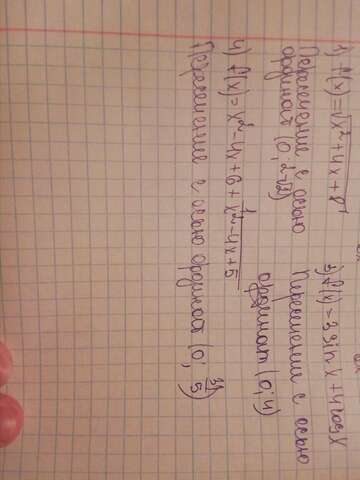 1) f(x) = √x²+4x+8
Пересечение с осью
ординат (0; 2√2)
3) f(x) = 3 sin x + 4 cos x
Пересечение с осью
ординат (0; 4)
4) f(x) = x² - 4x + 6 + 1/(x² - 4x + 5)
Пересечение с осью ординат (0; 31/5)